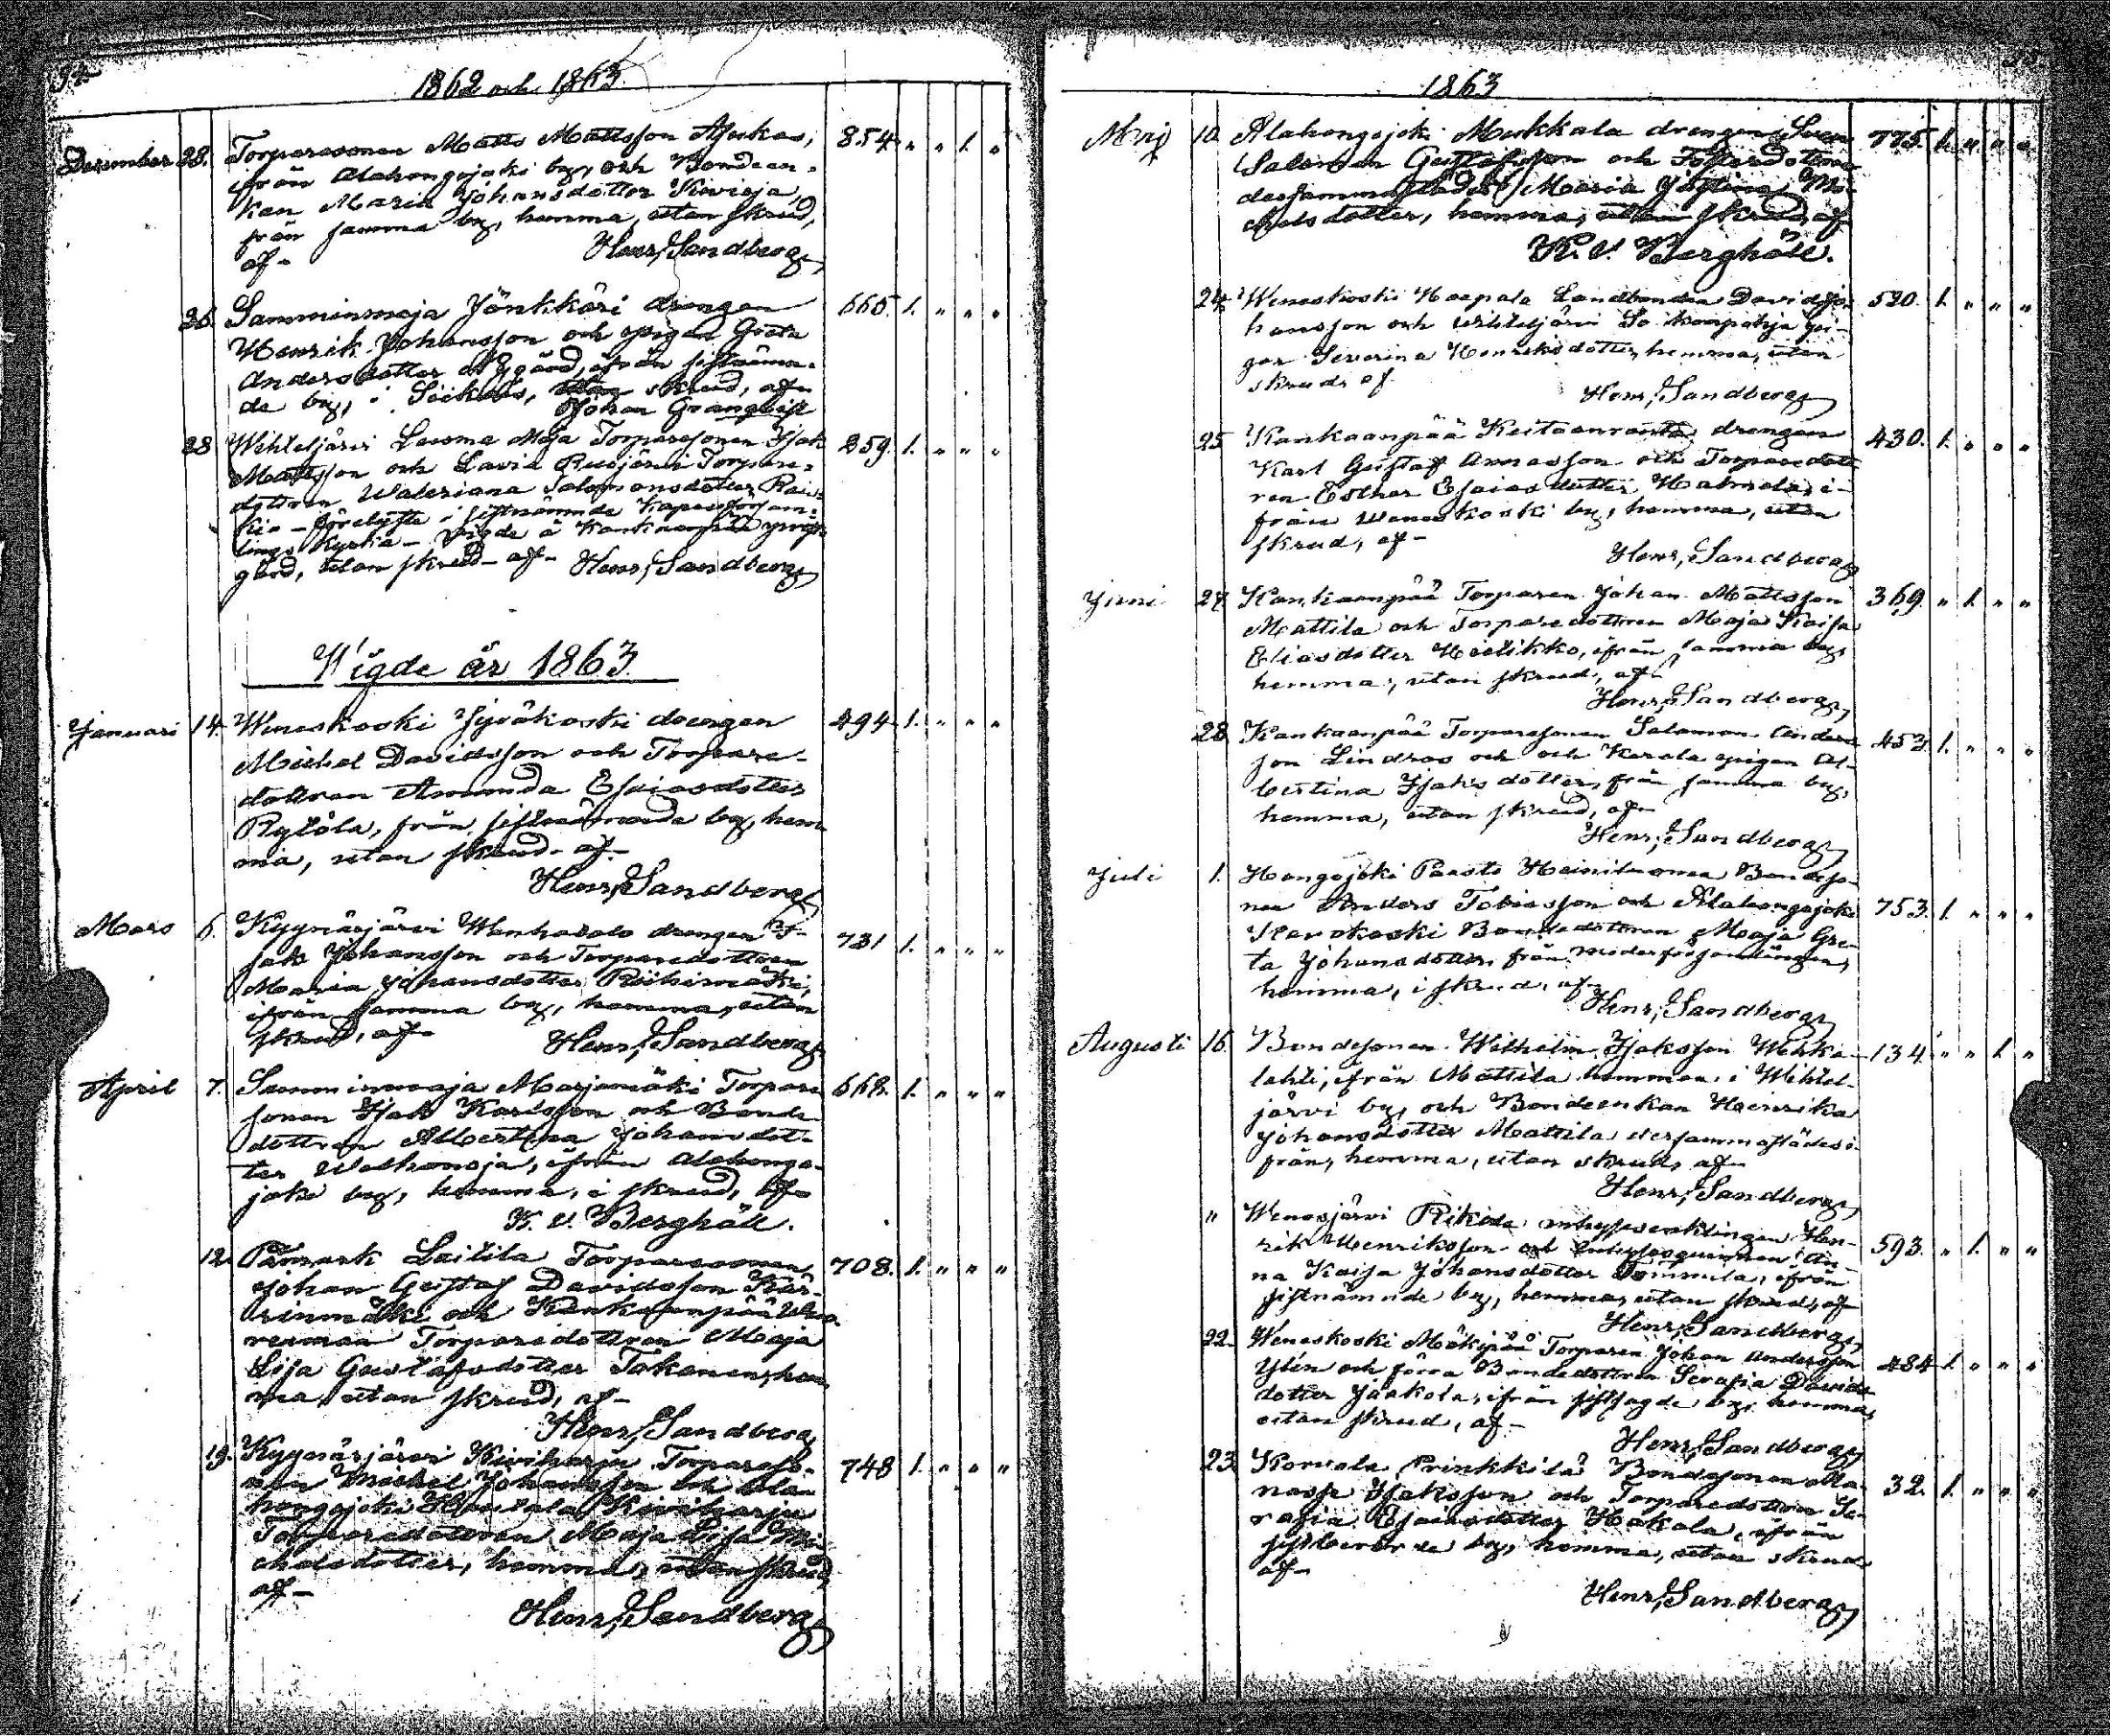 34
1862 och 1863.
December 28. Torparesonen Matts Mattsson Ajukas, 854 " " 1. "
ifrån Alahongojoki by, och Bondeen-
kan Maria Johansdotter Kivioja,
från samma by, hemma, utan skrud,
af- Henr. Sandberg
26. Samminmaja Jönkkäri drengen 665. 1. " " "
Henrik Johansson och pigan Greta
Andersdotter från sistnäm-
de by, i Siikais, utan skrud, af
Johan Granqvist
28 Wihteljärvi Luoma Maja Torparesonen Isak 259. 1. " " "
Mattsson och Lavia Torpare-
dottren Waleriana Salomonsdotter
kia - i sistnämnde Kapellförsam-
lings Kyrka - Wigde å Kankaanpää prest-
gård, utan skrud - af - Henr. Sandberg
Wigde år 1863.
Januari 14. Weneskoski Jyräkoski drengen 494. 1. " " "
Michel Davidsson och Torpare-
dottren Amanda Esaiasdotter
Rytölä, från sistnämnde by, hem-
ma, utan skrud - af -
Henr. Sandberg
Mars 6. Kyynärjärvi Wanhasalo drengen I- 731 1. " " "
sak Johansson och Torparedottren
Maria Johansdotter Riihimäki,
ifrån samma by, hemma, utan
skrud, af- Henr. Sandberg
April 7. Samminmaja Marjamäki Torpare- 668. 1. " " "
sonen Isak Karlsson och Bonde-
dottren Albertina Johansdot-
ter Walkonoja, ifrån Alahongo-
joki by, hemma, i skrud, af-
K. V. Berghäll.
12. Påmark Laitila Torparesonen 708. 1. " " "
Johan Gustaf Davidsson
och Kankaanpää
Torparedottren Maja
Lisa Gustafsdotter Takanen, hem-
ma, utan skrud, af-
Henr. Sandberg
19. Kyynärjärvi Kiviharju Torpareso- 748 1. " " "
nen Michel Johansson och Ala-
hongojoki Kiviharju
Torparedottren Maja Lisa Mi-
chelsdotter, hemma, utan skrud,
af-
Henr. Sandberg
1863
Maj 10. Alahongojoki Markkala drengen Sven 775. 1. " " "
Salomon Gustafsson och
dersammastädes Maria Justina Mi-
chelsdotter, hemma, utan skrud, af
K. V. Berghäll.
24. Weneskoski Haapala Landbonden David Jo- 520. 1. " " "
hansson och Wihteljärvi pi-
gan Severina Henriksdotter, hemma, utan
skrud, af
Henr. Sandberg
25 Kankaanpää Keitaanranta drengen 430. 1. " " "
Karl Gustaf Annasson och Torparedott-
ren Esther Esaiasdotter i-
från Weneskoski by, hemma, utan
skrud, af-
Henr. Sandberg
Juni 27. Kankaanpää Torparen Johan Mattsson 369. " 1. " "
Mattila och Torparedottren Maja Kaisa
Eliasdotter Hietikko, ifrån samma by,
hemma, utan skrud, af-
Henr. Sandberg
28. Kankaanpää Torparesonen Salomon Anders- 453. 1. " " "
son Lindroos och Karala pigan Al-
bertina Isaksdotter, från samma by,
hemma, utan skrud, af-
Henr. Sandberg
Juli 1. Hongojoki Paasto Heiniluoma Bondeso-
nen Anders Tobiasson och Alahongojoki 753. 1. " " "
Koskoski Bondedottren Maja Gre-
ta Johansdotter, från moderförsamlingen,
hemma, i skrud, af-
Henr. Sandberg
Augusti 16. Bondesonen Wilhelm Isaksson Wehka- 134. " " 1. "
lahti, ifrån Mattila hemman i Wihtel-
järvi by, och Bondeenkan Henrika
Johansdotter Mattila dersammastädes i-
från, hemma, utan skrud, af-
Henr. Sandberg
" Wenesjärvi inhysesenklingen Hen-
rik Henriksson och Inhysesqvinnan An- 593. " 1. " "
na Kaisa Johansdotter Tommila, ifrån
sistnämnde by, hemma, utan skrud, af
Henr. Sandberg
22. Weneskoski Mäkipää Torparen Johan Andersson
Ylin och förra Bondedottren Serafia Davids- 484 1. " " "
dotter Jaakola, ifrån sistsagde by, hemma,
utan skrud, af-
Henr. Sandberg
23. Korvala Prinkkilä Bondesonen Ma-
nasse Isaksson och Torparedottren Se- 32. 1. " " "
rafia Esaiasdotter Hakala, ifrån
sistberörde by, hemma, utan skrud
af-
Henr. Sandberg